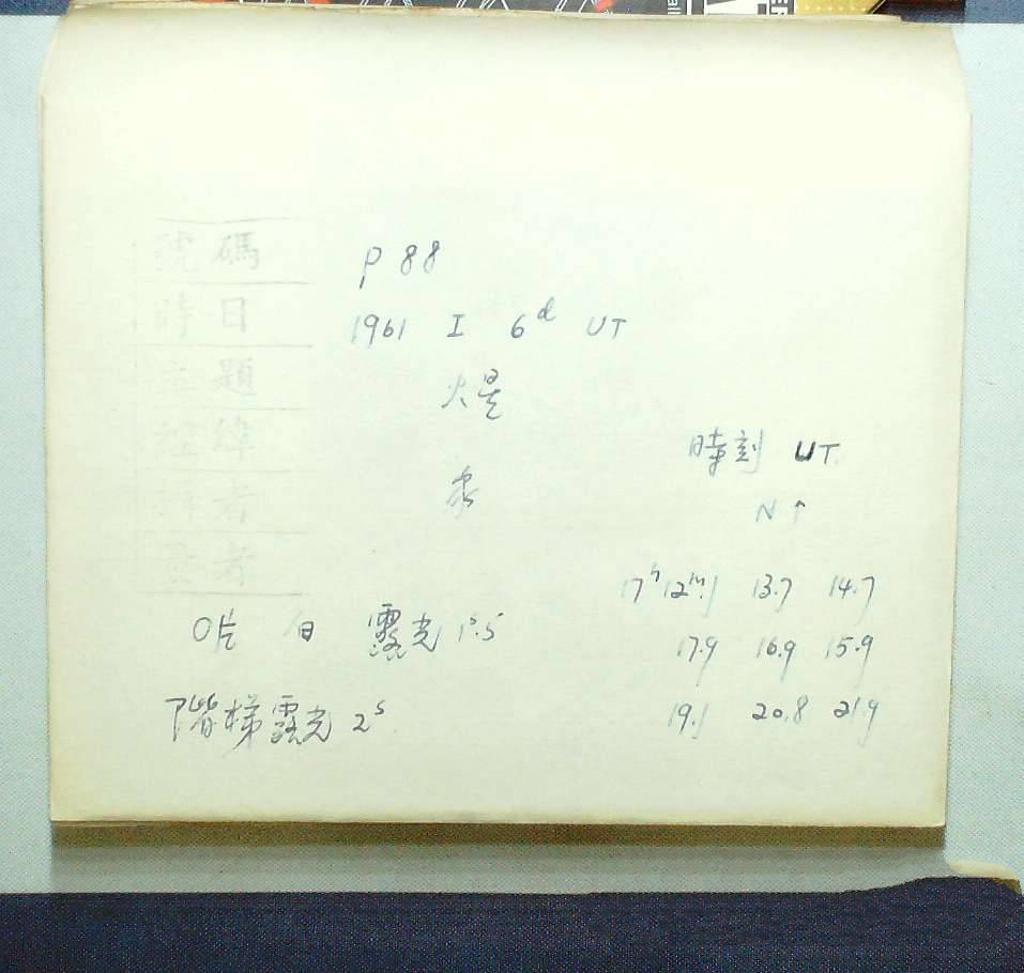 號碼
時日
主題
經緯
者
者
P 88
1961 I 6d UT
火星
赤
時刻 UT
N ↑
17h12m.1 13.7 14.7
17.9 16.9 15.9
19.1 20.8 21.9
O片 白 露光 1s.5
階梯露光 2s